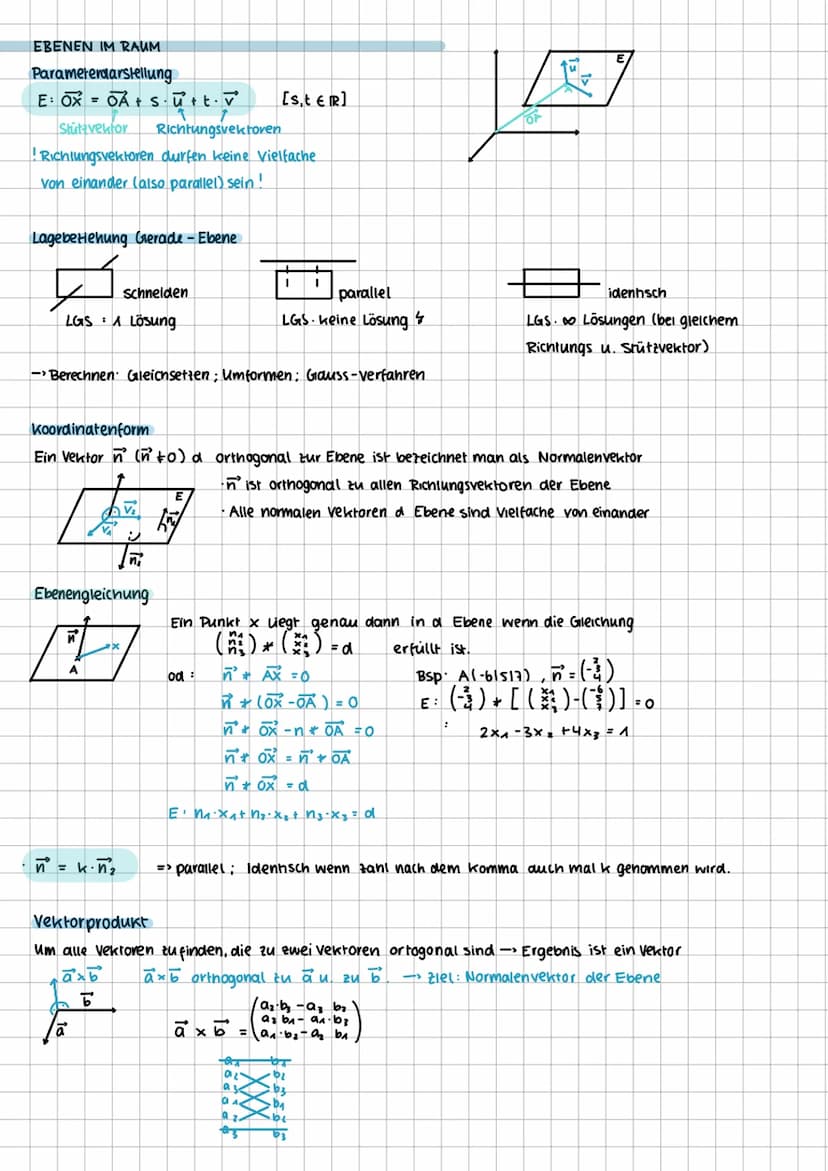 EBENEN IM RAUM
Parameterdarstellung
E: OX⃗ = OA⃗ + s · u⃗ + t · v⃗ [s,t ∈ ℝ]
Stützvektor Richtungsvektoren
! Richtungsvektoren dürfen keine Vielfache
von einander (also parallel) sein !
E
u⃗
v⃗
A
OA⃗
Lagebeziehung Gerade - Ebene
schneiden parallel identisch
LGS : 1 Lösung LGS: keine Lösung ↯ LGS: ∞ Lösungen (bei gleichem
Richtungs u. Stützvektor)
→ Berechnen: Gleichsetzen ; Umformen ; Gauss-Verfahren
Koordinatenform
Ein Vektor n⃗ (n⃗ ≠ 0) d orthogonal zur Ebene ist bezeichnet man als Normalenvektor
· n⃗ ist orthogonal zu allen Richtungsvektoren der Ebene
· Alle normalen Vektoren d Ebene sind Vielfache von einander
E
v⃗₂
v⃗₁
n⃗₁
Ebenengleichung
Ein Punkt x liegt genau dann in d Ebene wenn die Gleichung
(n₁ n₂ n₃) * (x₁ x₂ x₃) = d erfüllt ist.
n⃗
x
A
od : n⃗ * AX⃗ = 0
n⃗ * (OX⃗ - OA⃗) = 0
n⃗ * OX⃗ - n * OA⃗ = 0
n⃗ * OX⃗ = n⃗ * OA⃗
n⃗ * OX⃗ = d
E: n₁·x₁ + n₂·x₂ + n₃·x₃ = d
Bsp: A(-6|5|7) , n⃗ = (2 -3 4)
E: (2 -3 4) * [ (x₁ x₂ x₃) - (-6 5 7) ] = 0
: 2x₁ - 3x₂ + 4x₃ = 1
· n⃗ = k · n⃗₂ => parallel ; Identisch wenn zahl nach dem Komma auch mal k genommen wird.
Vektorprodukt
Um alle Vektoren zu finden, die zu zwei Vektoren ortogonal sind → Ergebnis ist ein Vektor
a⃗×b⃗ a⃗×b⃗ orthogonal zu a⃗ u. zu b⃗. → Ziel: Normalenvektor der Ebene
b⃗
a⃗
a⃗ × b⃗ = (a₂·b₃ - a₃ b₂
a₃ b₁ - a₁·b₃
a₁·b₂ - a₂ b₁)
a₁ b₁
a₂ b₂
a₃ b₃
a₁ b₁
a₂ b₂
a₃ b₃